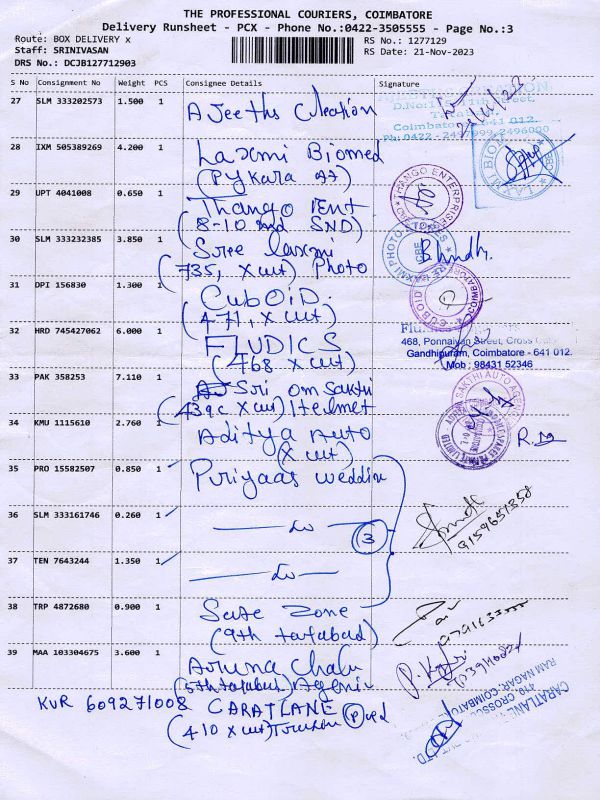 THE PROFESSIONAL COURIERS, COIMBATORE
Delivery Runsheet - PCX - Phone No.:0422-3505555 - Page No.:3
Route: BOX DELIVERY x
RS No.: 1277129
Staff: SRINIVASAN
RS Date: 21-Nov-2023
DRS No.: DCJB127712903
S No Consignment No Weight PCS Consignee Details Signature
27 SLM 333202573 1.500 1 AJeeths Creation
D.No:1 11th Street,
Coimbatore 641 012.
Ph: 0422 - 2496000
28 IXM 505389269 4.200 1 Laxmi Biomed
(Pykara
29 UPT 4041008 0.650 1 Thango Tent
(8-10 2nd SND)
THANGO ENTERPRISES
30 SLM 333232385 3.850 1 Sree Laxmi
(735, X cut) Photo
Bhudh.
31 DPI 156830 1.300 1 CUBOID.
(471, X cut)
CUBOID COIMBATORE
32 HRD 745427062 6.000 1 FLUDICS
(468 X cut)
468, Ponnaiyan Street, Cross Cut
Gandhipuram, Coimbatore - 641 012.
Mob : 98431 52346
33 PAK 358253 7.110 1 Sri om Sakthi
(439c X cut) Helmet
SAKTHI AUTO
34 KMU 1115610 2.760 1 Aditya Auto
(X cut)
35 PRO 15582507 0.850 1 Priyaas weddin
36 SLM 333161746 0.260 1 do
3
9159651358
37 TEN 7643244 1.350 1 do
38 TRP 4872680 0.900 1 Safe Zone
(9th tatabad)
39 MAA 103304675 3.600 1 Aruna Chala
(5th tatabad) Agenci
KVR 609271008 CARATLANE
(410 X cut)
CARATLANE
410, CROSSCUT
RAM NAGAR, COIMBATORE